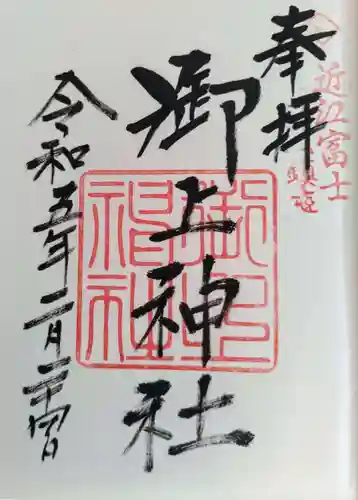 奉拝
近江富士
鎮座
御上神社
御上神社
令和五年二月二十四日